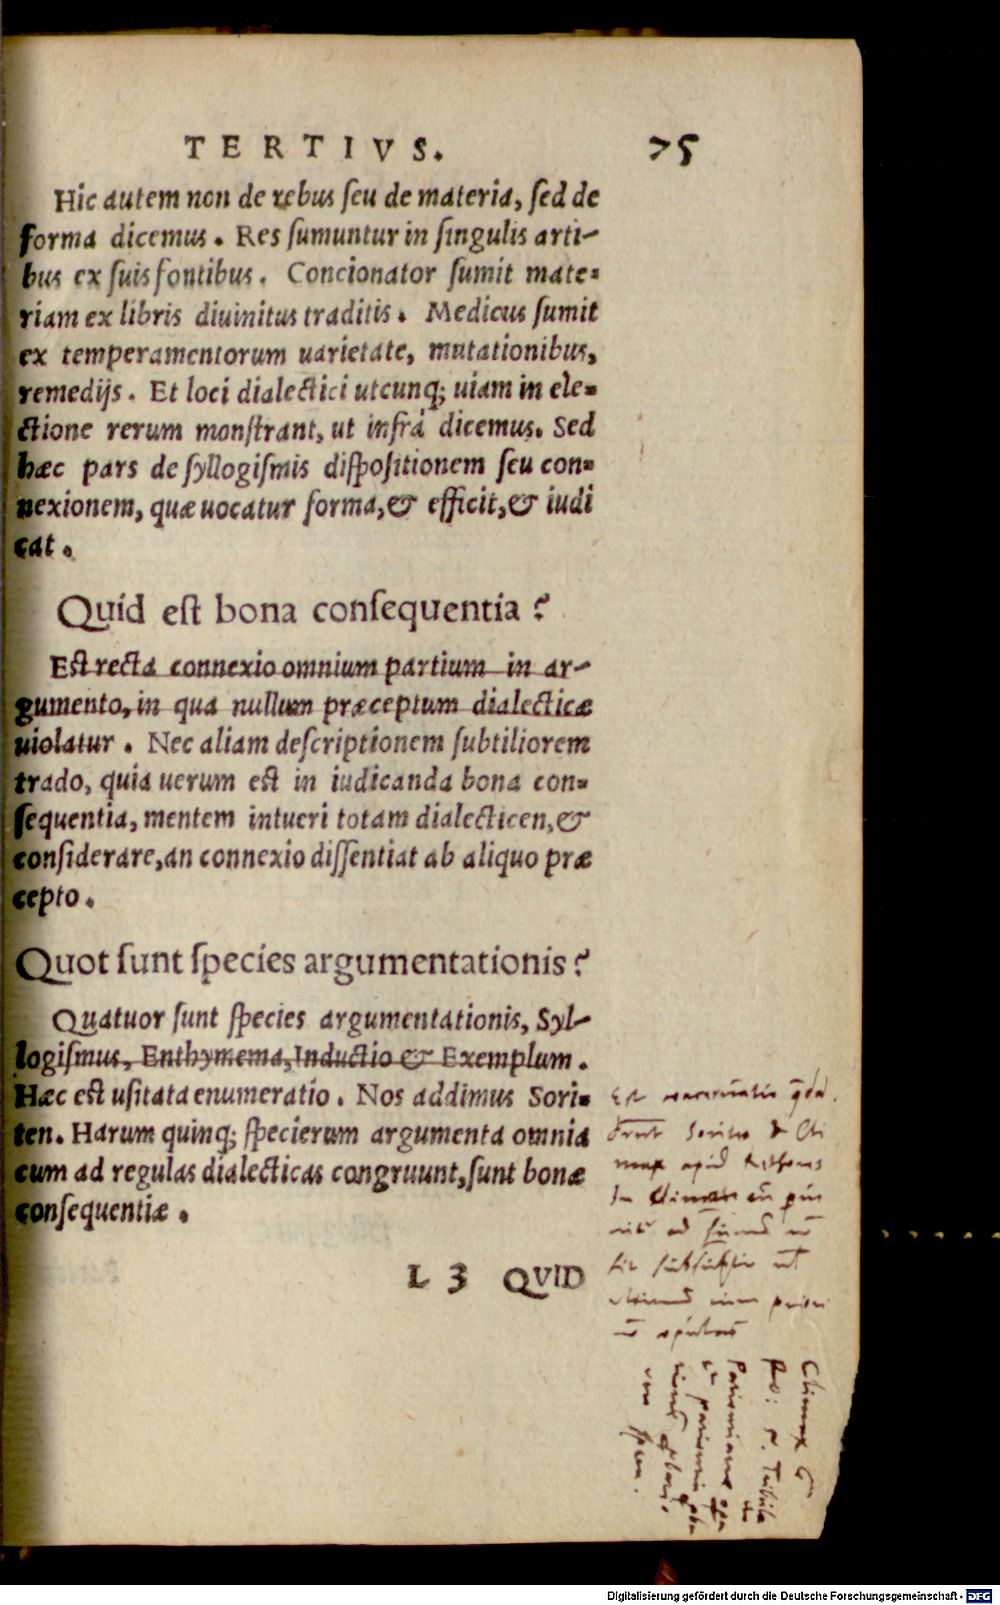 TERTIVS. 75
Hic autem non de rebus ſeu de materia, ſed de
forma dicemus. Res ſumuntur in ſingulis arti-
bus ex ſuis fontibus. Concionator ſumit mate=
riam ex libris diuinitus traditis. Medicus ſumit
ex temperamentorum uarietate, mutationibus,
remedijs. Et loci dialectici utcunq; uiam in ele=
ctione rerum monſtrant, ut infrà dicemus. Sed
hæc pars de ſyllogiſmis diſpoſitionem ſeu con=
nexionem, quæ uocatur forma, & efficit, & iudi
cat.
Quid eſt bona conſequentia?
Eſt recta connexio omnium partium in ar-
gumento, in qua nullum præceptum dialecticæ
uiolatur. Nec aliam deſcriptionem ſubtiliorem
trado, quia uerum eſt in iudicanda bona con=
ſequentia, mentem intueri totam dialecticen, &
conſiderare, an connexio diſſentiat ab aliquo præ
cepto.
Quot ſunt ſpecies argumentationis?
Quatuor ſunt ſpecies argumentationis, Syl-
logiſmus, Enthymema, Inductio & Exemplum.
Hæc eſt uſitata enumeratio. Nos addimus Sori=
ten. Harum quinq; ſpecierum argumenta omnia
cum ad regulas dialecticas congruunt, ſunt bonæ
conſequentiæ.
L 3 QVID
Est
Sorites & Cli
max apud
In
ad
Climax
Ro:
Digitalisierung gefördert durch die Deutsche Forschungsgemeinschaft - DFG